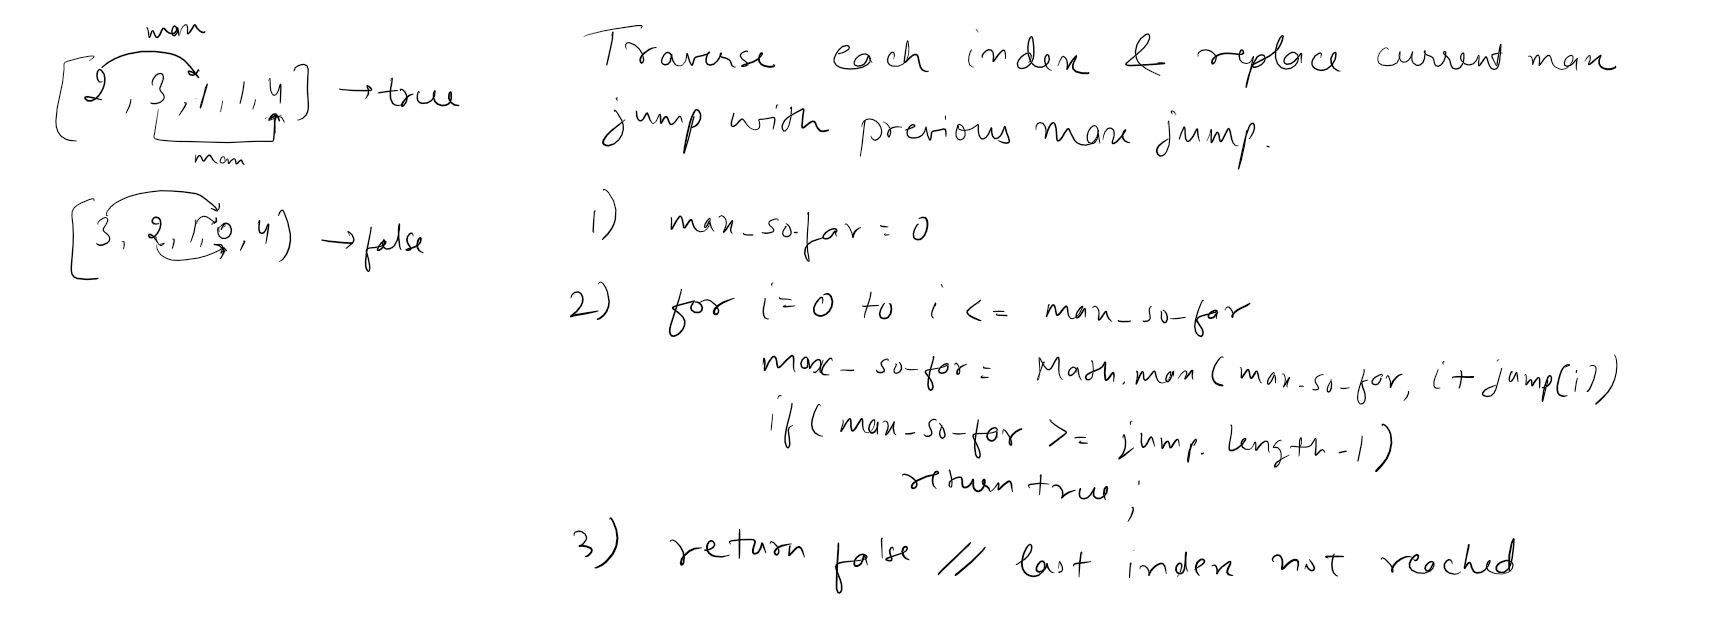 max
[2, 3, 1, 1, 4] → true
max
[3, 2, 1, 0, 4) → false
Traverse each index & replace current max
jump with previous max jump.
1) max_so_far = 0
2) for i = 0 to i <= max_so_far
max_so_far = Math.max(max_so_far, i + jump(i))
if (max_so_far >= jump.length - 1)
return true;
3) return false // last index not reached